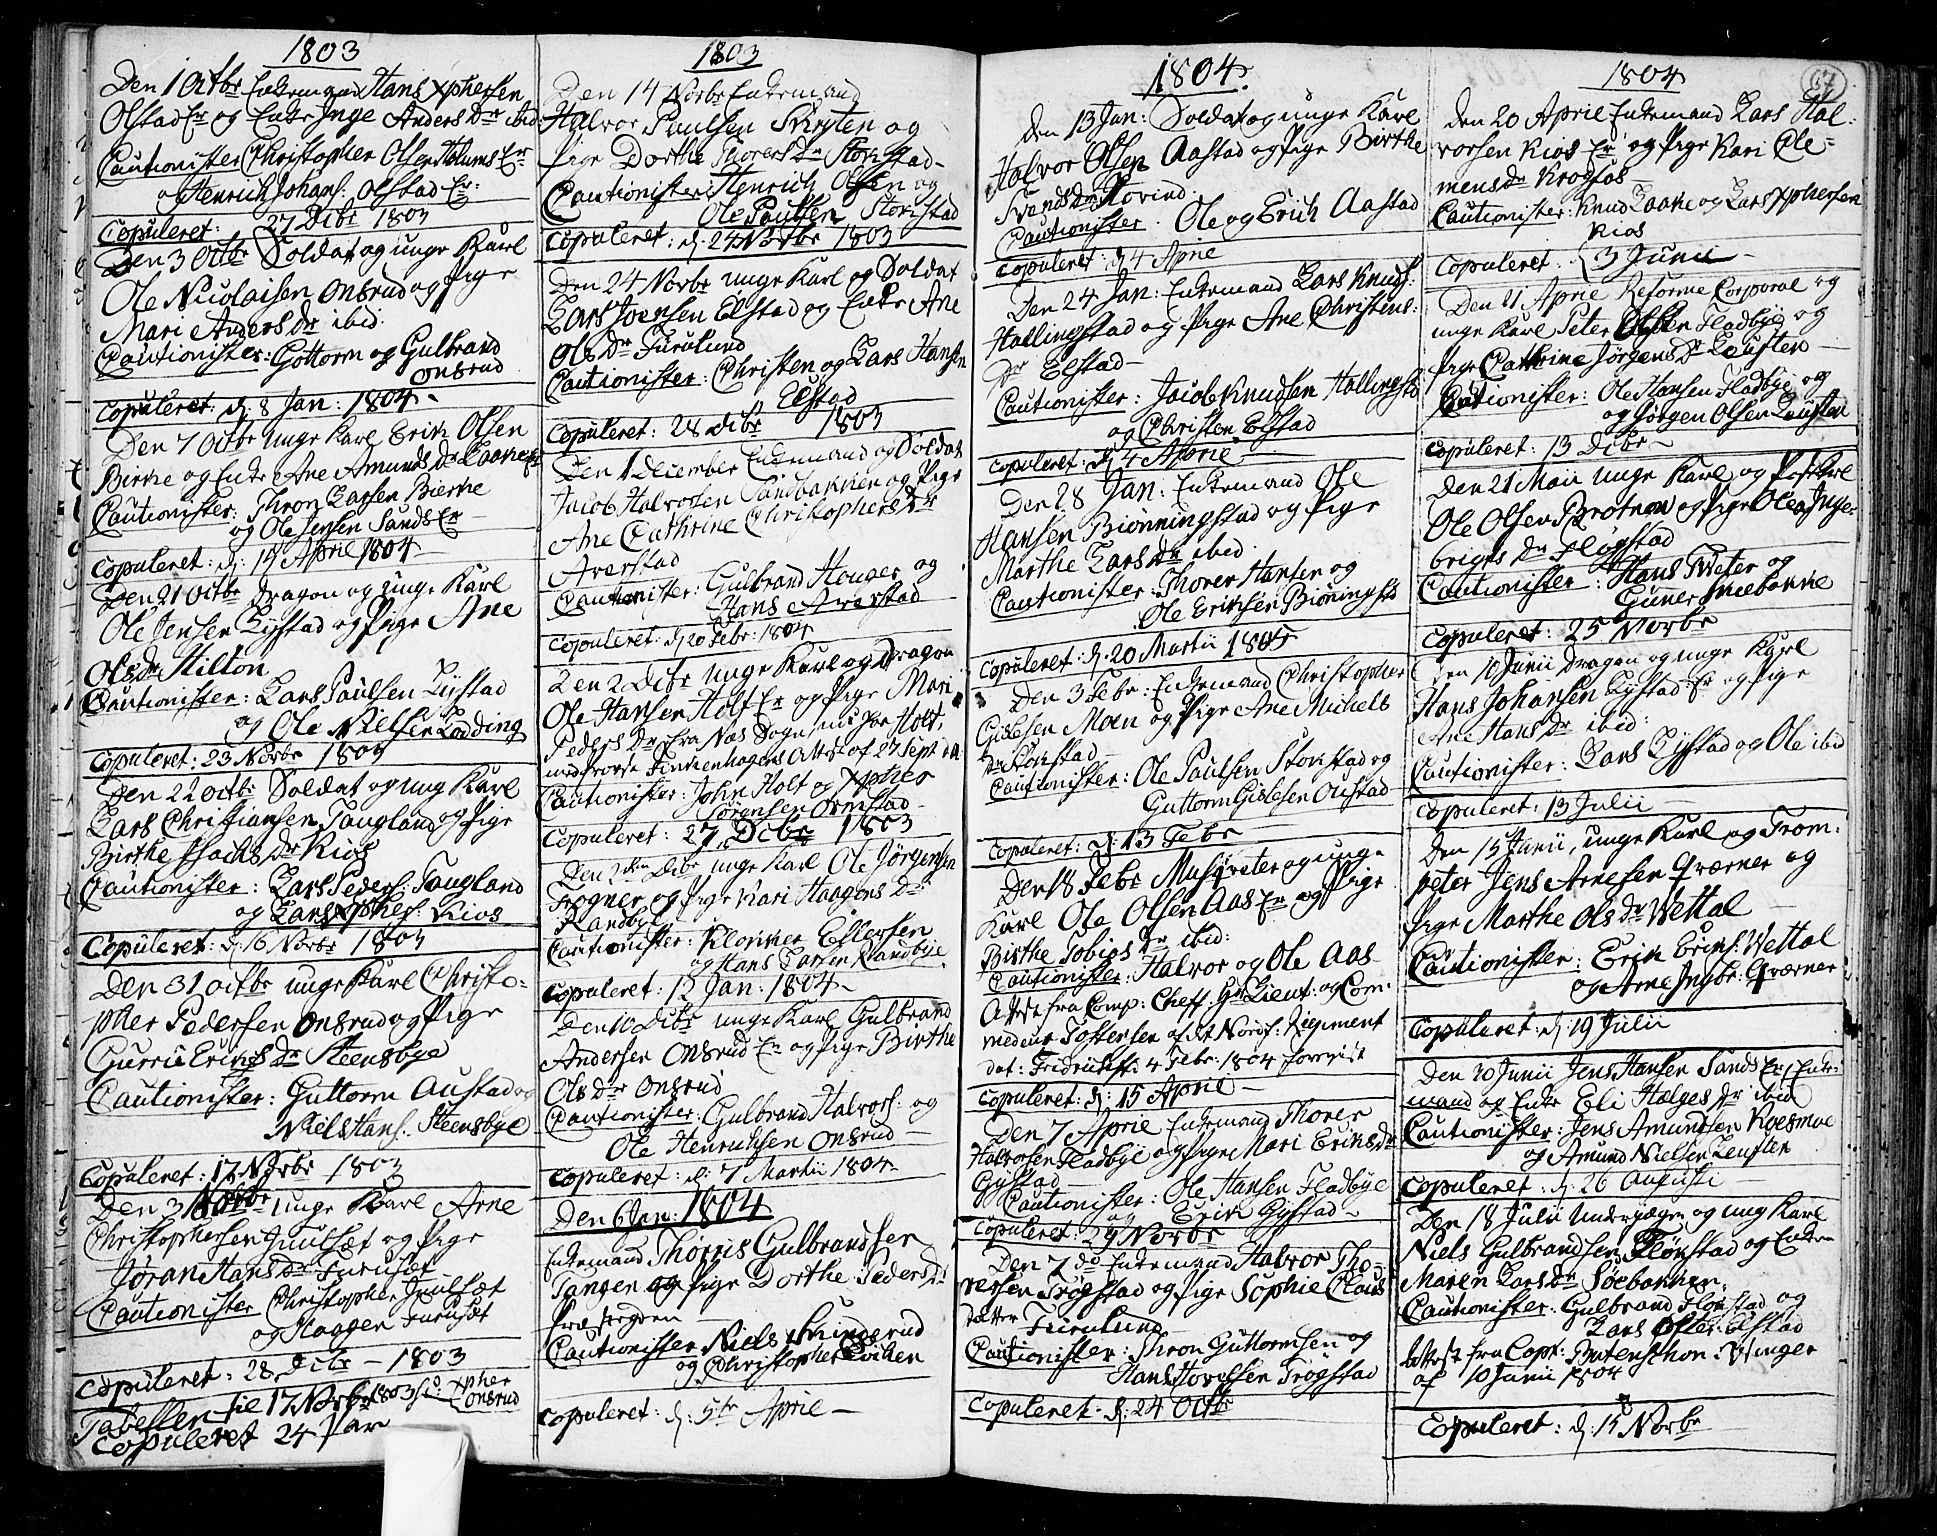 1803
Den 1 Octbr Enkemand Hans Xphersen
Olstad Er og Enke Inge Anders Dr ibid:
Cautionister Christopher Olsen Holums Er
og Henrich Johans: Olstad Er:
Copuleret: 27 Dcbr 1803
Den 3 Octbr Soldat og unge Karl
Ole Nicolaisen Onsrud og Pige
Mari Anders Dr ibid.
Cautionister: Gottorm og Gulbrand
Onsrud
Copuleret: d: 8 Jan: 1804
Den 7 Octbr unge Karl Erik Olsen
Birke og Enke Ane Amunds Dr Laake Er
Cautionister: Thron Larsen Bierke
og Ole Jensen Sands Er
Copuleret: d: 14 Aprie 1804
Den 21 Octbr Dragon og unge Karl
Ole Jensen Lystad og Pige Ane
Ols Dr Hilton
Cautionister: Lars Paulsen Lystad
og Ole Nielsen Lodding
Copuleret: 23 Novbr 1803
Den 22 Octbr Soldat og ung Karl
Lars Christiansen Taugland og Pige
Birthe Isachs Dr Kios
Cautionister: Lars Peders: Taugland
og Lars Xphes: Kios
Copuleret: d: 16 Novbr 1803
Den 31 Octbr unge Karl Christo-
pher Pedersen Onsrud og Pige
Gurrie Eriks Dr Steensbye
Cautionister: Guttorm Austad og
Niels Hans: Steensbye
Copuleret: 17 Novbr 1803
Den 3 Novbr unge Karl Arne
Christophersen Juulset og Pige
Jøran Hans Dr Furuset
Cautionister Christopher Juulset
og Haagen Furuset
Copuleret: 28 Dcbr 1803
Tabellen til 17 Novbr 1803 Xpher
Onsrud
Copuleret 24 Par
1803
Den 14 Novbr Enkemand
Halvor Paulsen Kirsten og
Pige Dorthe Thorers Dr Storstad
Cautionister: Henrich Olsen og
Ole Paulsen Storstad
Copuleret: d: 24 Novbr 1803
Den 24 Novbr unge Karl og Soldat
Lars Joensen Elstad og Enke Ane
Ols Dr Furulund
Cautionister: Christen og Lars Hansen
Elstad
Copuleret: 28 Dcbr 1803
Den 1 December Enkemand og Soldat
Jacob Halvorsen Sandbakken og Pige
Ane Cathrine Christophers Dr
Averstad
Cautionister: Gulbrand Houger og
Hans Averstad
Copuleret: d: 20 Febr: 1804
Den 2 Dcbr unge Karl og Dragon
Ole Hansen Holt Er og Pige Mari
Peders Dr fra Næs Sogn, nu paa Holt,
med Finkenhagens Attest af 27 Sept:
Cautionister: John Holt og Xpher
Jørgensen Ormstad
Copuleret: 27 Dcbr 1803
Den 2den Dcbr unge Karl Ole Jørgensen
Frogner og Pige Kari Haagens Dr
Randbye
Cautionister: Klokker Ellersen
og Hans Larsen Randbye
Copuleret: 12 Jan: 1804
Den 10 Dcbr unge Karl Gulbrand
Andersen Onsrud Er og Pige Birthe
Ols Dr Onsrud
Cautionister: Gulbrand Halvors: og
Ole Henrichsen Onsrud
Copuleret: d: 7 Martii 1804
Den 6 Jan: 1804
Enkemand Thorris Gulbrandsen
Tangen og Pige Dorthe Peders Dr
Cautionister Niels Kringsrud
og Christopher Eviken
Copuleret: d: 5te Aprie
1804.
Den 13 Jan: Soldat og unge Karl
Halvor Olsen Aastad og Pige Birthe
Svends Dr Hovind
Cautionister. Ole og Erich Aastad
Copuleret: d 4 Aprie
Den 24 Jan: Enkemand Lars Knuds:
Hallingstad og Pige Ane Christens:
Dr Elstad
Cautionister: Jacob Knudsen Hallingstd
og Christen Elstad
Copuleret: d: 4 Aprie
Den 28 Jan: Enkemand Ole
Hansen Biønningstad og Pige
Marthe Lars Dr ibid
Cautionister: Thorer Hansen og
Ole Eriksen Bionningstd
Copuleret: d: 20 Martii 1805
Den 3 Febr: Enkemand Christopher
Gislesen Moen og Pige Ane Michels
Dr Storstad
Cautionister: Ole Paulsen Storstad og
Guttorm Gislesen Oustad
Copuleret: d: 13 Febr
Den 18 Febr Musqveter og unge
Karl Ole Olsen Aas Er og Pige
Birthe Tobies Dr ibid:
Cautionister: Halvor og Ole Aas
Attest fra Comp: Cheff: Gr Lieut: og Com-
medeur Toftersen af Nordf: Regiment
dat: Fridrichst: 4 Febr: 1804 forevist
Copuleret: d: 15 Aprie
Den 7 Aprie Enkemand Thorer
Halvorsen Fladbye og Pige Mari Eriks Dr
Gystad
Cautionister: Ole Hansen Fladbye
og Erik Gystad
Copuleret: 29 Novbr
Den 7 do Enkemand Halvor Tho-
rersen Trøgstad og Pige Sophie Claus
datter Furulund
Cautionister: Thron Guttormsen og
Hans Hovelsen Trøgstad
Copuleret: d: 24 Octbr
1804
67
Den 20 Aprie Enkemand Lars Hal-
vorsen Kios Er og Pige Kari Cle-
mens Dr Krogfos
Cautionister: Knud Laake og Lars Xphersen
Kios
Copuleret: d 3 Junii
Den 21 Aprie Reforme Corporal og
unge Karl Peter Olsen Fladbye og
Pige Cathrine Jørgens Dr Leusten
Cautionister: Ole Hansen Fladbye og
og Jørgen Olsen Leusten
Copuleret: 13 Dcbr
Den 21 Maii unge Karl og Postkarl
Ole Olsen Brotnou og Pige Olea Inge-
brigts Dr Flogstad
Cautionister: Hans Tveter og
Guner Smebakke
Copuleret: 25 Novbr
Den 10 Junii Dragon og unge Karl
Hans Johansen Lystad Er og Pige
Ane Hans Dr ibid:
Cautionister: Lars Lystad og Ole ibid
Copuleret: 13 Julii
Den 15 Junii, unge Karl og Trom-
peter Jens Arnesen Qværner og
Pige Marthe Ols Dr Wettal
Cautionister: Erik Eriks: Wettal
og Arne Ingbr: Qværner
Copuleret: d: 19 Julii
Den 20 Junii Jens Hansen Sands Er, Enke-
mand og Enke Eli Helges Dr ibid
Cautionister: Jens Amundsen Roesmoe
og Amund Nielsen Leusten
Copuleret: d: 26 Augusti
Den 18 Julii Underjæger og ung Karl
Niels Gulbrandsen Flønstad og Enken
Maren Lars Dr Søebakken
Cautionister: Gulbrand Flønstad og
Lars Elstad
Attest fra Capt: Butenschon: Winger
af 10 Junii 1804
Copuleret: d: 15 Novbr